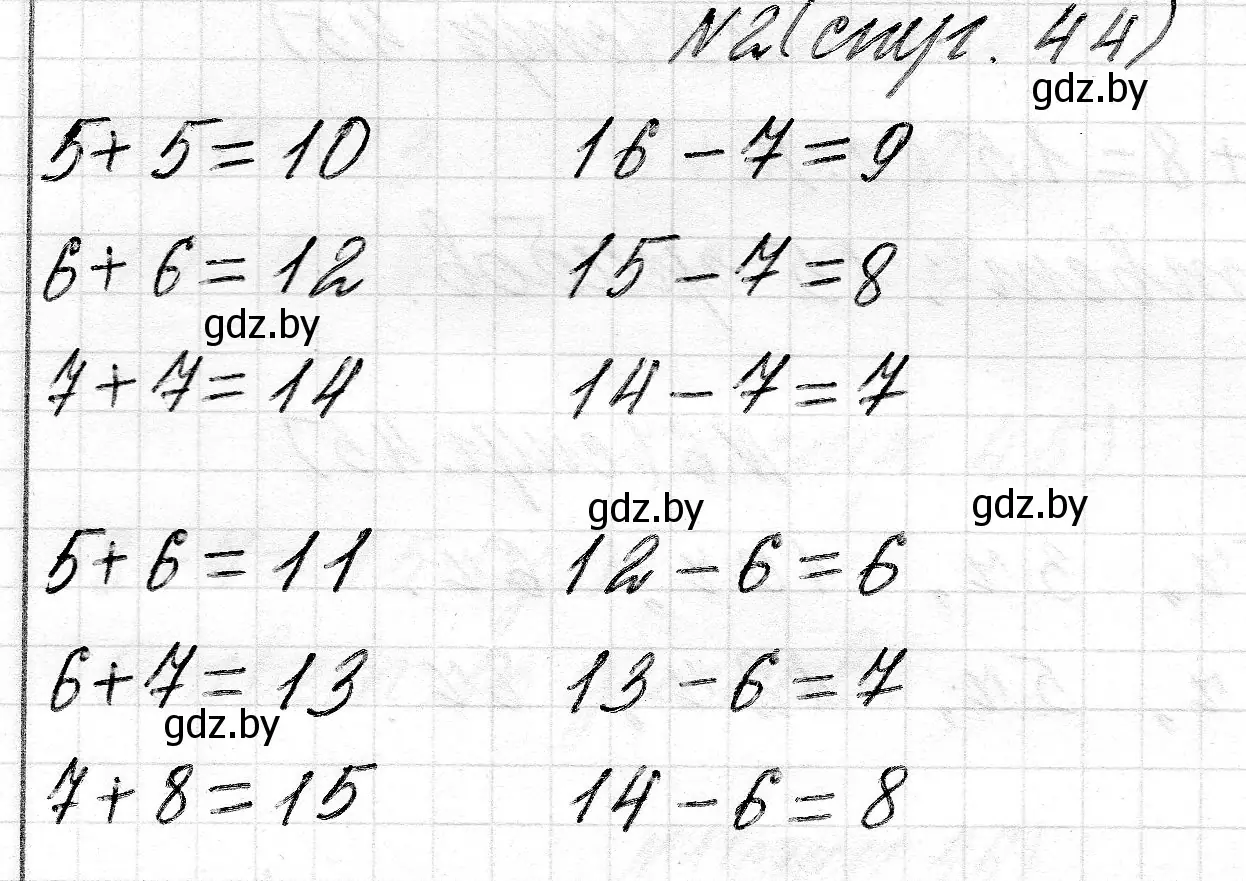 №2 (стр. 44)
gdz.by
5+5=10 16-7=9
6+6=12 15-7=8
gdz.by
7+7=14 14-7=7
gdz.by gdz.by
5+6=11 12-6=6
6+7=13 13-6=7
gdz.by
7+8=15 14-6=8